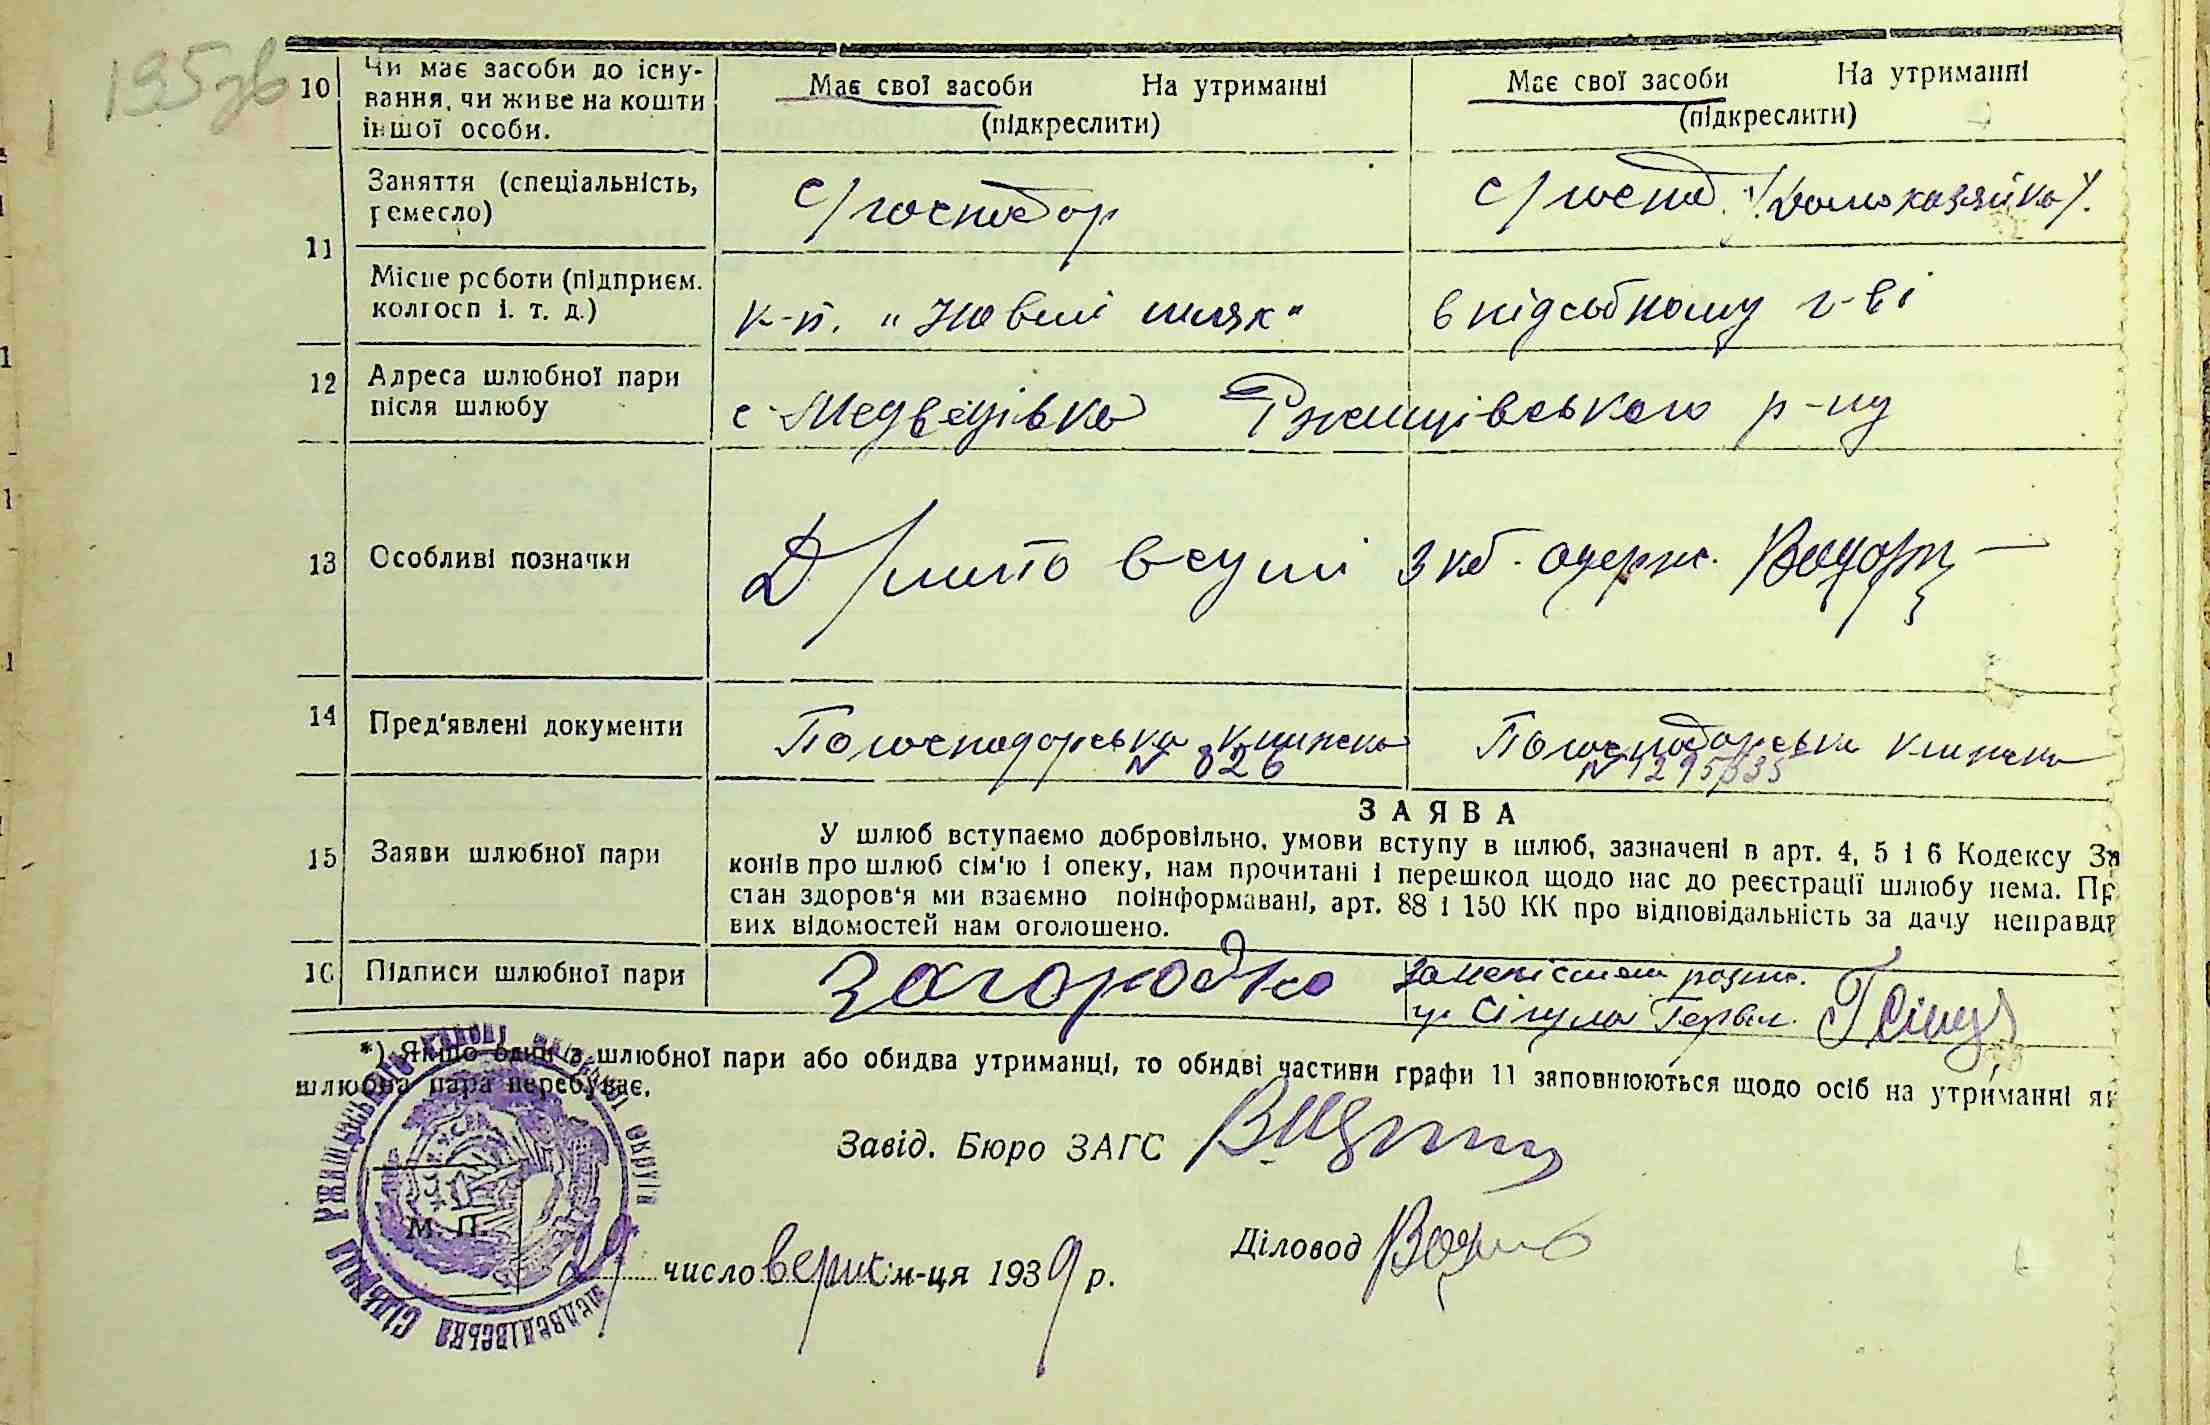 195зв
10 Чи має засоби до існу-
вання, чи живе на кошти
іншої особи.
Має свої засоби На утриманні
(підкреслити)
Має свої засоби На утриманні
(підкреслити)
11
Заняття (спеціальність,
ремесло)
с/господар
с/господ. /Домохазяйка/.
Місце роботи (підприєм.
колгосп і. т. д.)
к-п. "Новий шлях"
в підсобному г-ві
12 Адреса шлюбної пари
після шлюбу
с. Медведівка Ржищівського р-ну
13 Особливі позначки
в сумі 3 кб. одерж.
14 Пред'явлені документи
Погосподарська книжка
№ 826
Погосподарська книжка
№
15 Заяви шлюбної пари
ЗАЯВА
У шлюб вступаємо добровільно, умови вступу в шлюб, зазначені в арт. 4, 5 і 6 Кодексу За
конів про шлюб сім'ю і опеку, нам прочитані і перешкод щодо нас до реєстрації шлюбу нема. Пр
стан здоров'я ми взаємно поінформавані, арт. 88 і 150 КК про відповідальність за дачу неправди
вих відомостей нам оголошено.
16 Підписи шлюбної пари
Загородко
*) Якщо один з шлюбної пари або обидва утриманці, то обидві частини графи 11 заповнюються щодо осіб на утриманні як
шлюбна пара перебуває.
Завід. Бюро ЗАГС
Діловод
М. П.
29 число верес м-ця 1939 р.
МЕДВЕДІВСЬКА СІЛЬРАДА РЖИЩІВСЬКОГО РАЙОНУ КИЇВСЬКОЇ ОКРУГИ